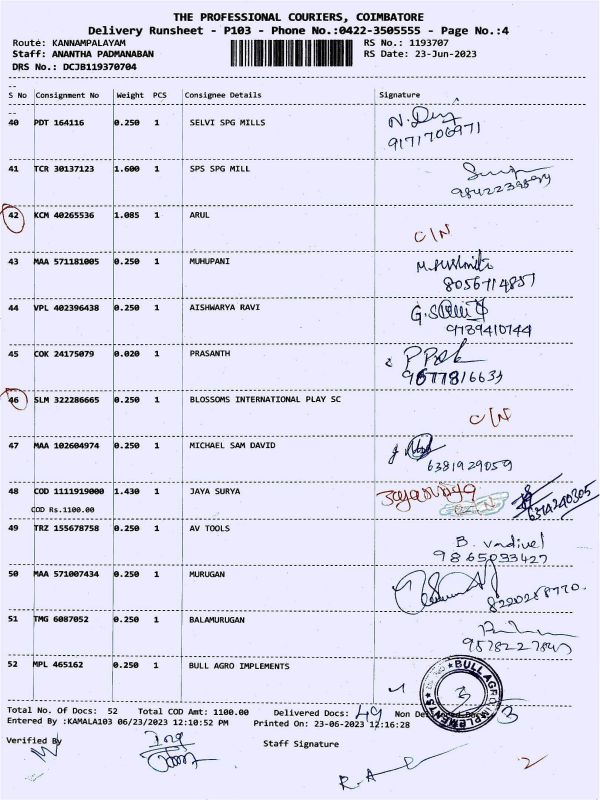 THE PROFESSIONAL COURIERS, COIMBATORE
Delivery Runsheet - P103 - Phone No.:0422-3505555 - Page No.:4
Route: KANNAMPALAYAM RS No.: 1193707
Staff: ANANTHA PADMANABAN RS Date: 23-Jun-2023
DRS No.: DCJB119370704
S No Consignment No Weight PCS Consignee Details Signature
40 PDT 164116 0.250 1 SELVI SPG MILLS
9171706971
41 TCR 30137123 1.600 1 SPS SPG MILL
42 KCM 40265536 1.085 1 ARUL
C/N
43 MAA 571181005 0.250 1 MUHUPANI
8056714857
44 VPL 402396438 0.250 1 AISHWARYA RAVI
9789410744
45 COK 24175079 0.020 1 PRASANTH
9677816633
46 SLM 322286665 0.250 1 BLOSSOMS INTERNATIONAL PLAY SC
C/N
47 MAA 102604974 0.250 1 MICHAEL SAM DAVID
6381929059
48 COD 1111919000 1.430 1 JAYA SURYA
COD Rs.1100.00 6374240305
49 TRZ 155678758 0.250 1 AV TOOLS
B. Vadivel
9865093427
50 MAA 571007434 0.250 1 MURUGAN
8220288770.
51 TMG 6087052 0.250 1 BALAMURUGAN
52 MPL 465162 0.250 1 BULL AGRO IMPLEMENTS
BULL AGRO IMPLEMENTS
Total No. Of Docs: 52 Total COD Amt: 1100.00 Delivered Docs: 49 Non 3
Entered By :KAMALA103 06/23/2023 12:10:52 PM Printed On: 23-06-2023 12:16:28
Verified By Staff Signature
2